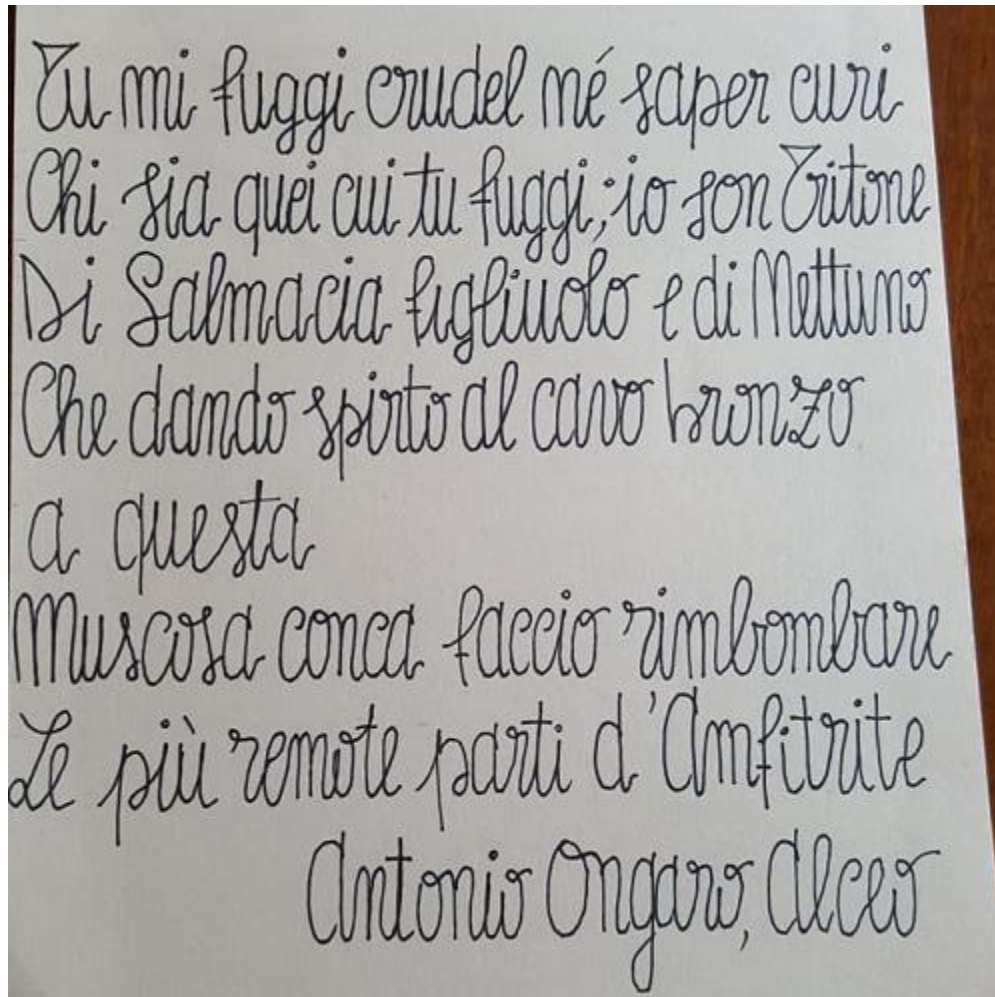 Tu mi fuggi crudel né saper curi
Chi sia quei cui tu fuggi; io son Tritone
Di Salmacia figliuolo e di Nettuno
Che dando spirto al cavo bronzo
a questa
Muscosa conca faccio rimbombare
Le più remote parti d'Amfitrite
Antonio Ongaro, Alceo